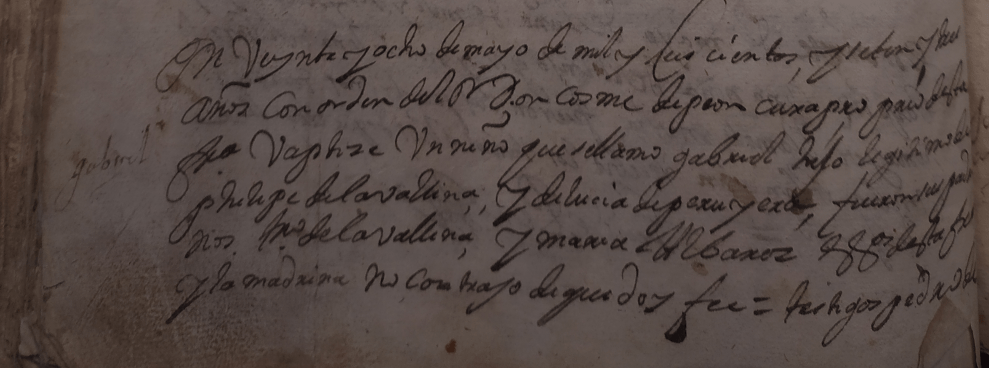 En Veynte y ocho de mayo de mil y seis cientos, y setenta y tres
años con orden del Sr Don cosme de peon cura pro prio desta
fra Vaptize Un niño que se llamo gabriel hijo legitimo de
gabriel
phelipe de la vallina, y de lucia de peruyera, fueron sus padri
nos Juo de la vallina, y maria Albarez vzos desta fra
y la madrina no contrajo de que doy fee = testigos pedro de